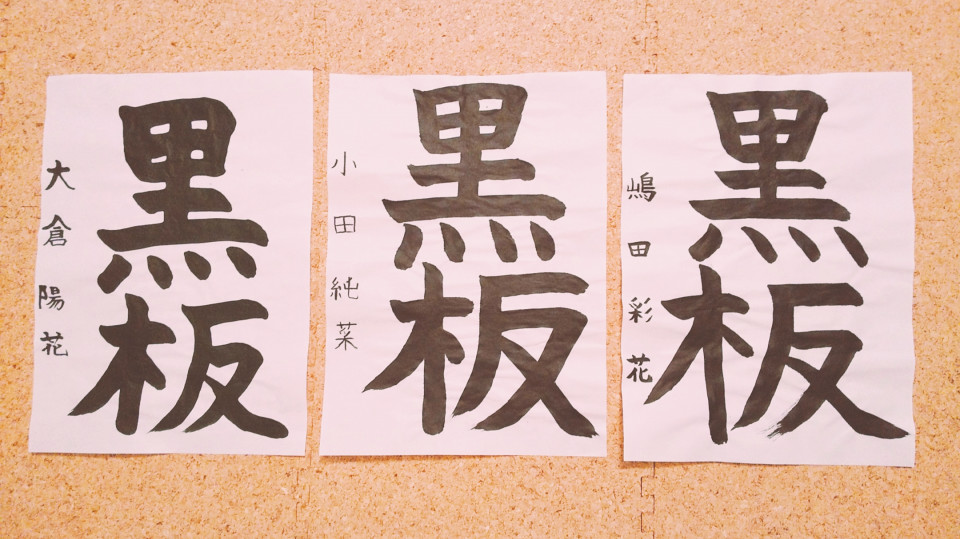 黒板
大倉陽花
黒板
小田純菜
黒板
嶋田彩花